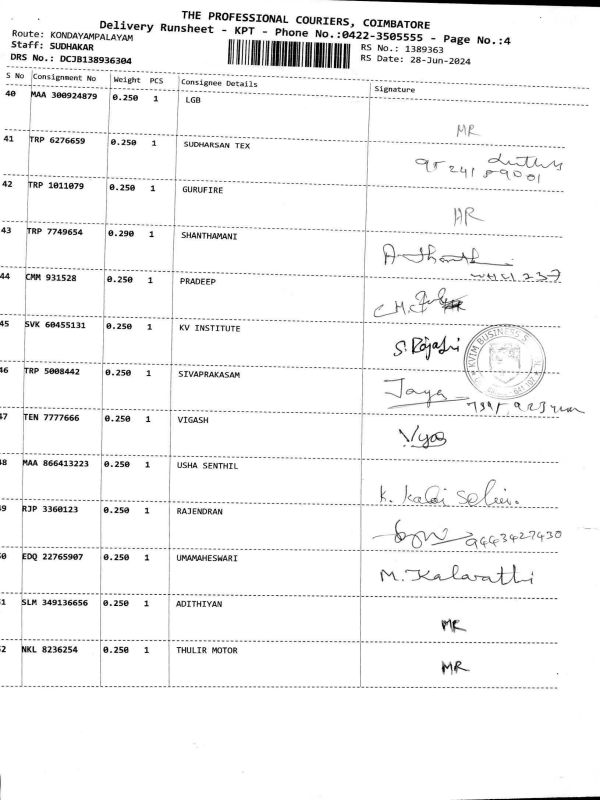 THE PROFESSIONAL COURIERS, COIMBATORE
Delivery Runsheet - KPT - Phone No.:0422-3505555 - Page No.:4
Route: KONDAYAMPALAYAM
RS No.: 1389363
Staff: SUDHAKAR
RS Date: 28-Jun-2024
DRS No.: DCJB138936304
S No Consignment No Weight PCS Consignee Details Signature
40 MAA 300924879 0.250 1 LGB MR
41 TRP 6276659 0.250 1 SUDHARSAN TEX
42 TRP 1011079 0.250 1 GURUFIRE
43 TRP 7749654 0.290 1 SHANTHAMANI
44 CMM 931528 0.250 1 PRADEEP
45 SVK 60455131 0.250 1 KV INSTITUTE S. Rajasri KVIM BUSINESS S
46 TRP 5008442 0.250 1 SIVAPRAKASAM Jaya
47 TEN 7777666 0.250 1 VIGASH Vyas
48 MAA 866413223 0.250 1 USHA SENTHIL K. Kalai Selvi.
49 RJP 3360123 0.250 1 RAJENDRAN 9443427430
0 EDQ 22765907 0.250 1 UMAMAHESWARI M. Kalavathi
1 SLM 349136656 0.250 1 ADITHIYAN MR
2 NKL 8236254 0.250 1 THULIR MOTOR MR